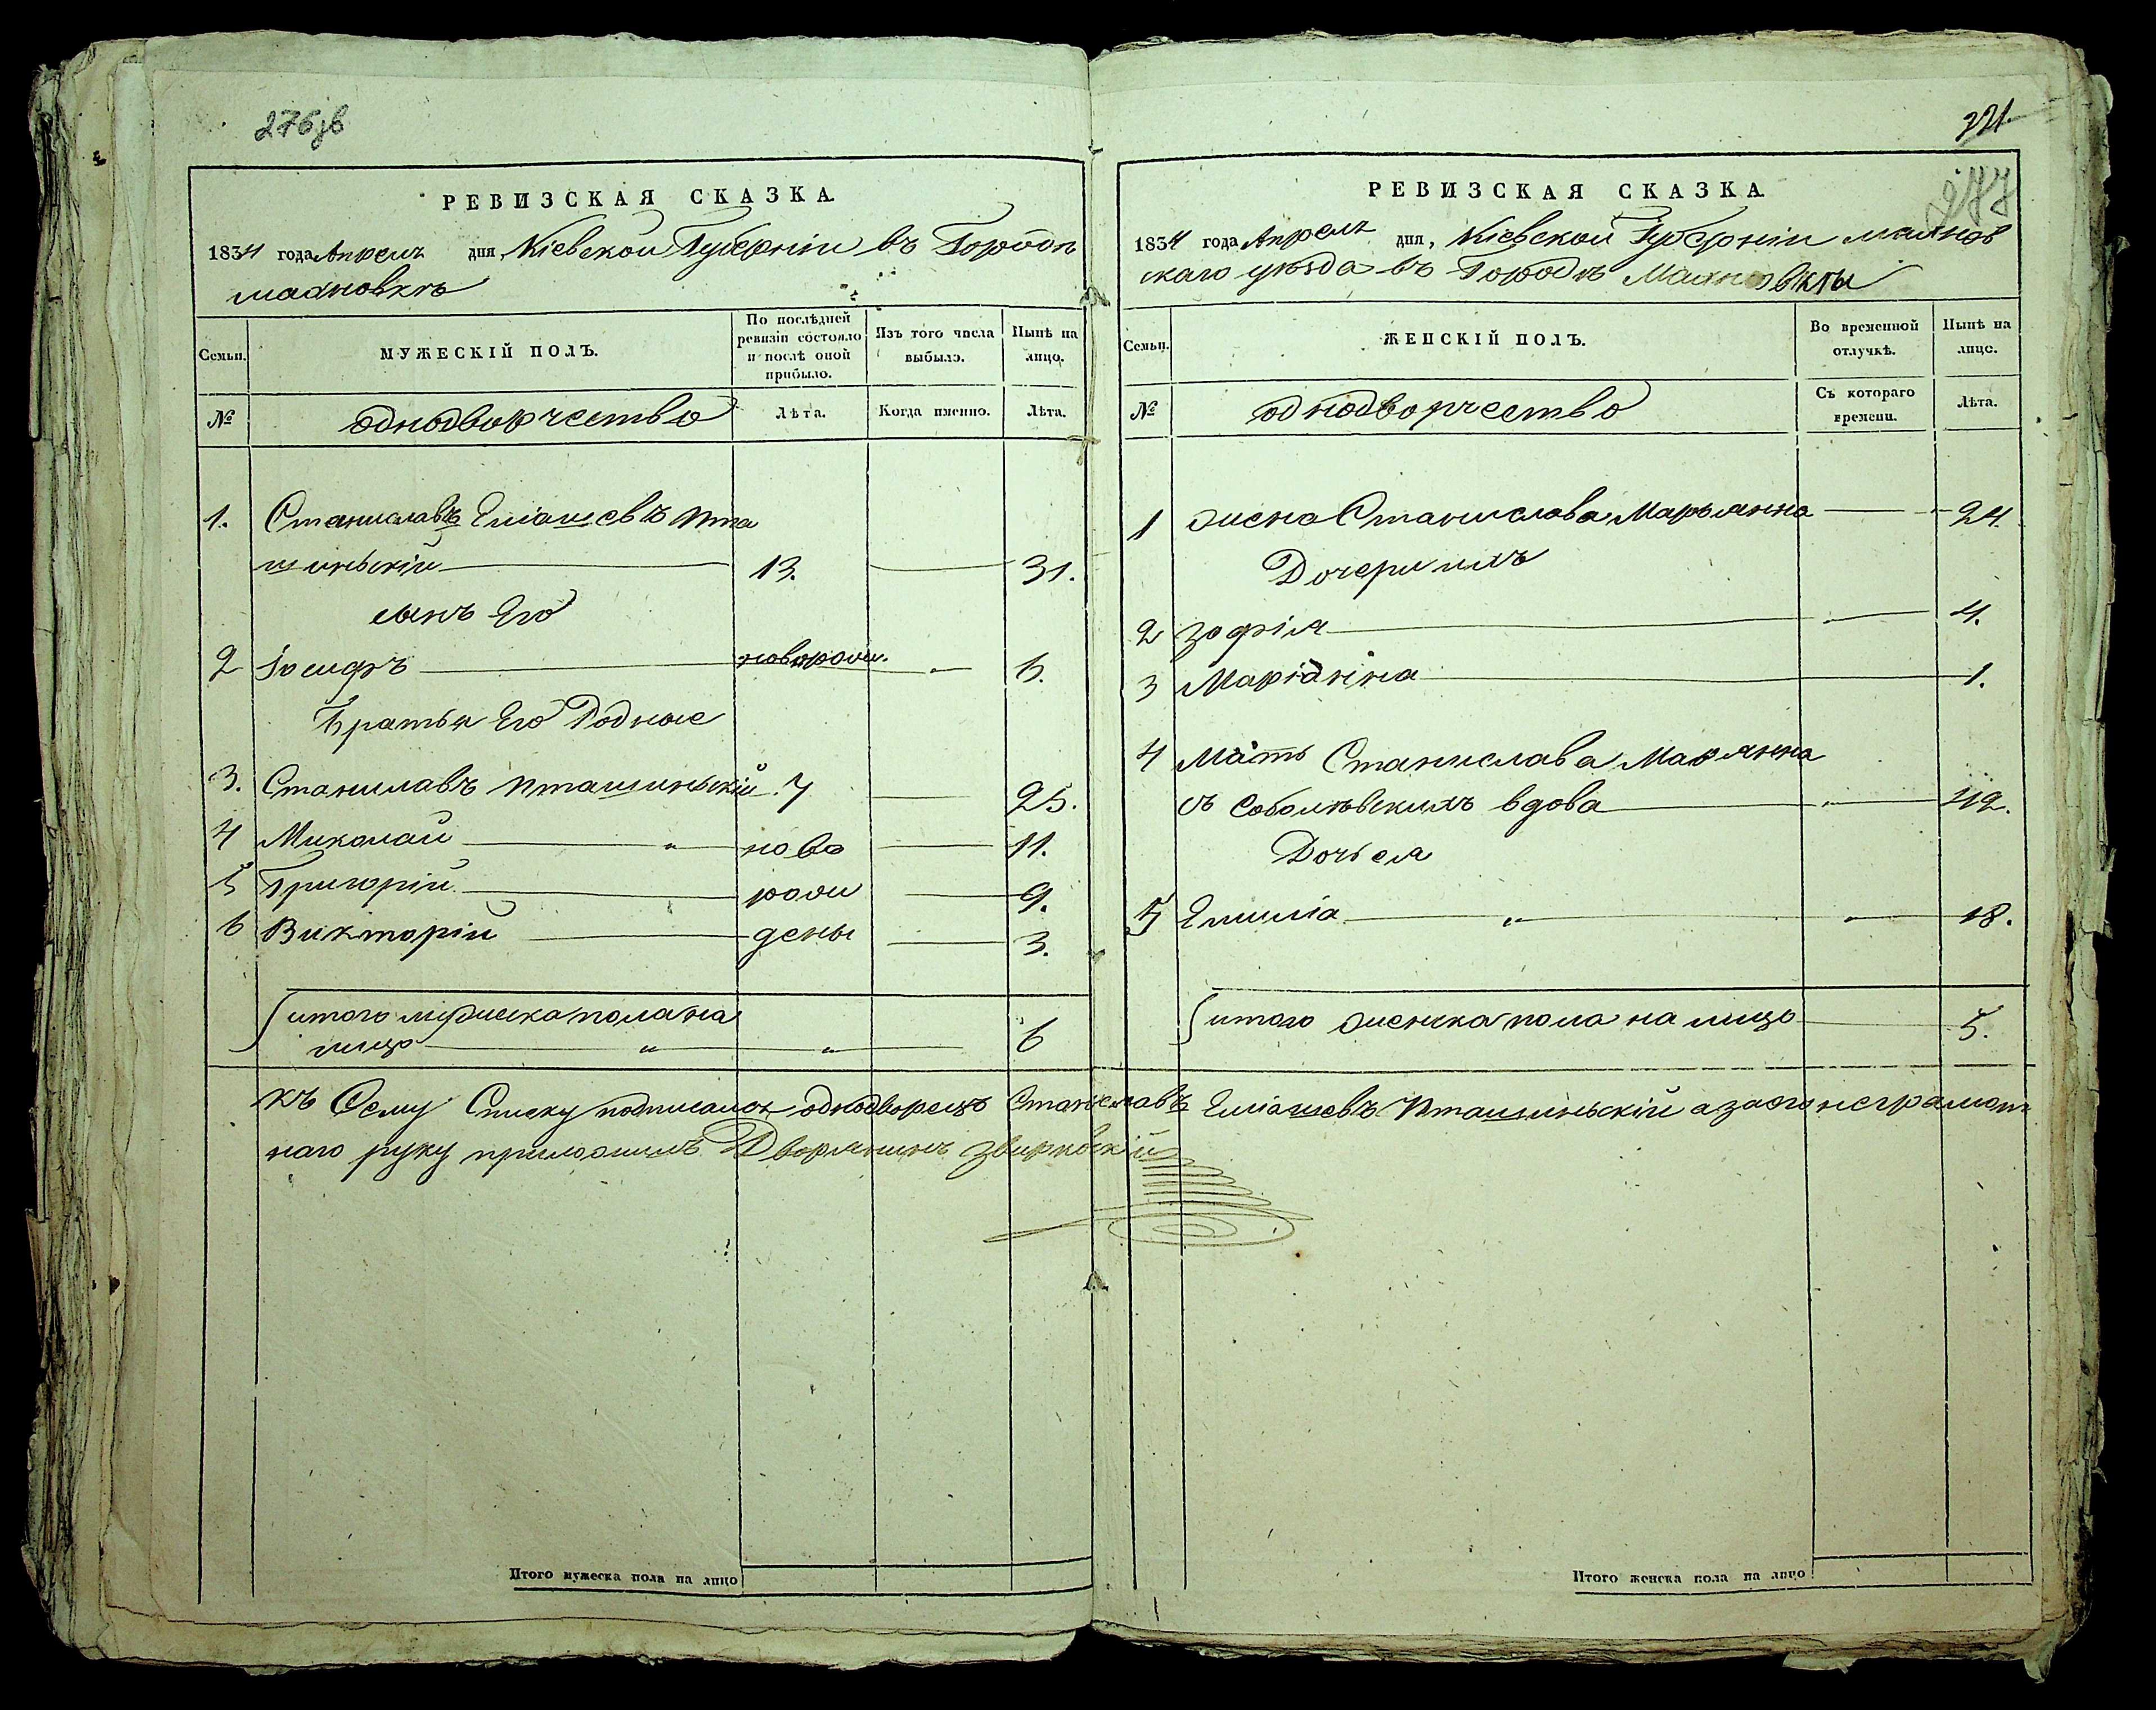 276зв
РЕВИЗСКАЯ СКАЗКА.
1834 года Апреля дня, Кіевской Губерніи въ Городѣ
махновкѣ
Семьи.
МУЖЕСКІЙ ПОЛЪ.
По послѣдней
ревизіи состояло
и послѣ оной
прибыло.
Изъ того числа
выбыло.
Нынѣ на
лицо.
№
однодворчество
Лѣта.
Когда именно.
Лѣта.
1. Станиславъ Еліашевъ Пта
шиньскій 13. 31.
сынъ Его
2 Іосифъ новорожд. 6.
Братья Его Родные
3. Станилавъ Пташиньскій 7 25.
4 Миколай " ново 11.
5 Григорій рожд 9.
6 Викторій дены 3.
итого мужеска пола на
лицо " " 6
Итого мужеска пола на лицо
321
277
РЕВИЗСКАЯ СКАЗКА
1834 года Апреля дня, Кіевской Губерніи махнов
скаго уѣзда въ Городѣ Махновкы
Семьи.
ЖЕНСКІЙ ПОЛЪ.
Во временной
отлучкѣ.
Нынѣ на
лицо.
№
однодворчество
Съ котораго
времени.
Лѣта.
1 жена Станислава Марьянна 24.
Дочери ихъ
2 Зофія 4.
3 Маріанна 1.
4 Мать Станислава Марянна
съ Соболѣвскихъ вдова " 42.
Дочь ея
5 Емилія " " 18.
итого женска пола на лицо 5.
Итого женска пола на лицо
къ Сему Списку подписался однодворецъ Станиславъ Еліашевъ Пташиньскій а за его неграмот
наго руку приложилъ Дворянинъ Звирковскій